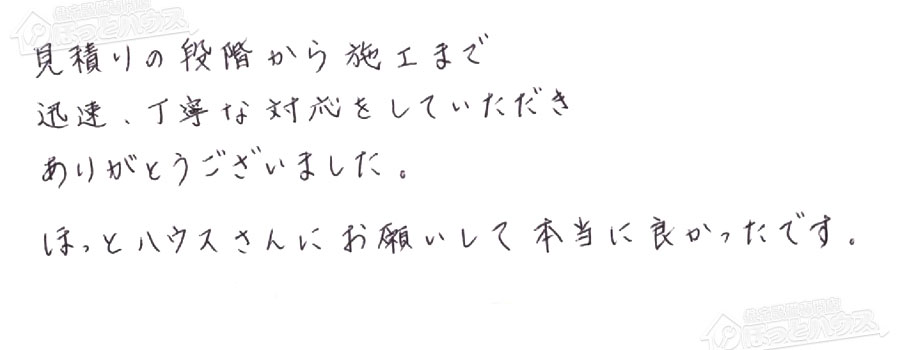 見積りの段階から施工まで
迅速、丁寧な対応をしていただき
ありがとうございました。
ほっとハウスさんにお願いして本当に良かったです。
ほっとハウス